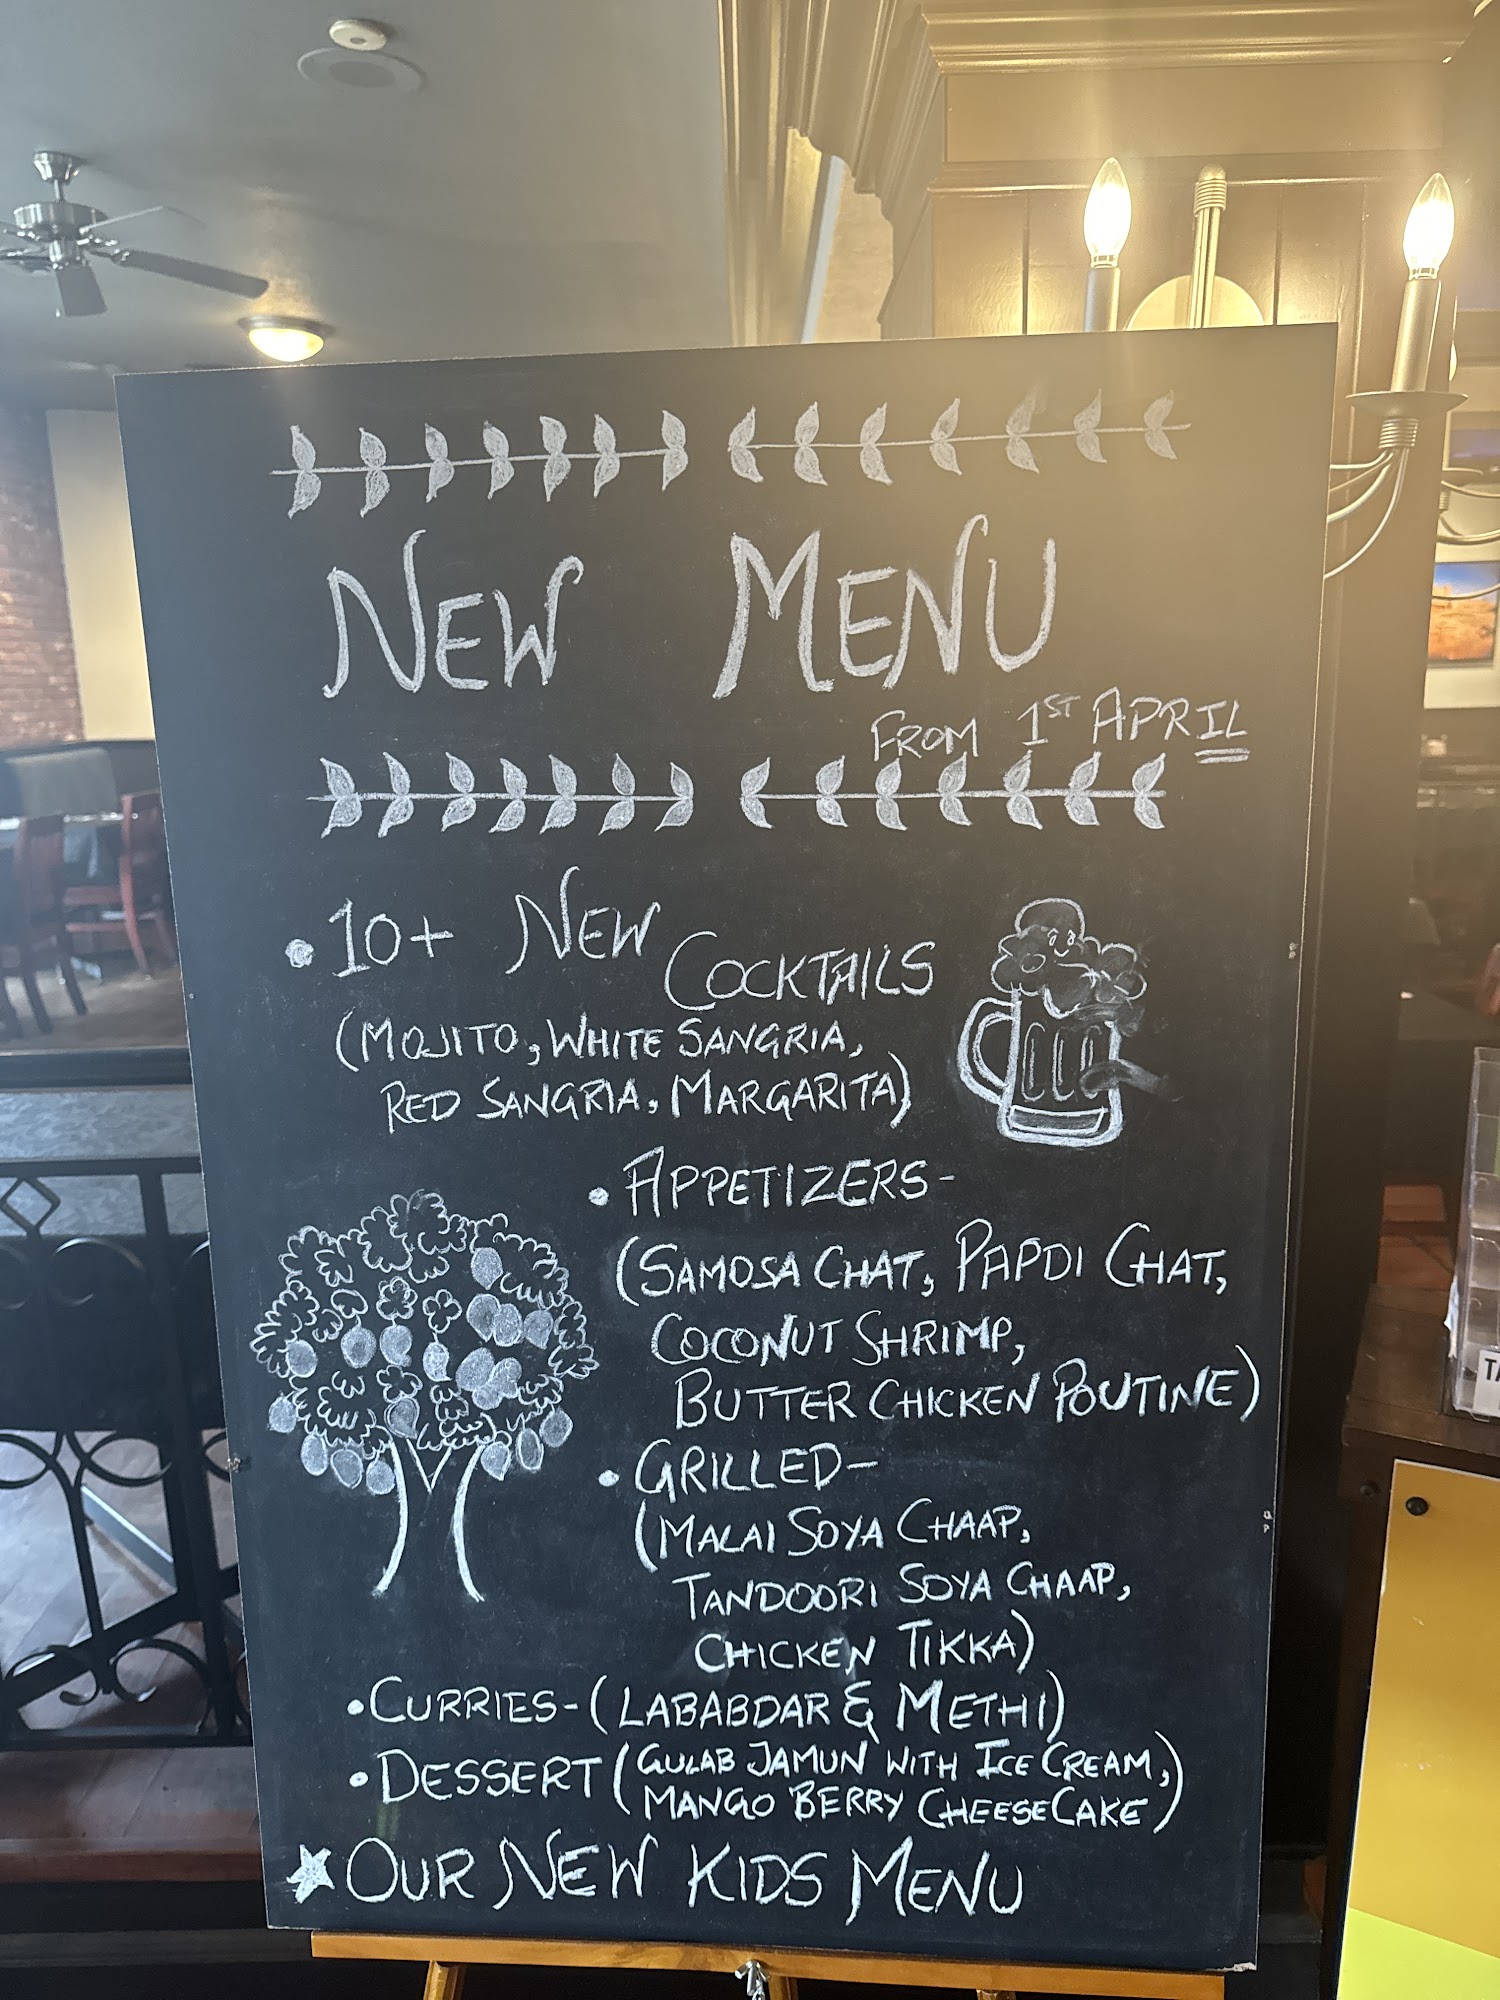 NEW MENU
FROM 1ST APRIL
• 10+ NEW COCKTAILS
(MOJITO, WHITE SANGRIA,
RED SANGRIA, MARGARITA)
• APPETIZERS-
(SAMOSA CHAT, PAPDI CHAT,
COCONUT SHRIMP,
BUTTER CHICKEN POUTINE)
• GRILLED-
(MALAI SOYA CHAAP,
TANDOORI SOYA CHAAP,
CHICKEN TIKKA)
• CURRIES-(LABABDAR & METHI)
• DESSERT (GULAB JAMUN WITH ICE CREAM,
MANGO BERRY CHEESECAKE)
★ OUR NEW KIDS MENU